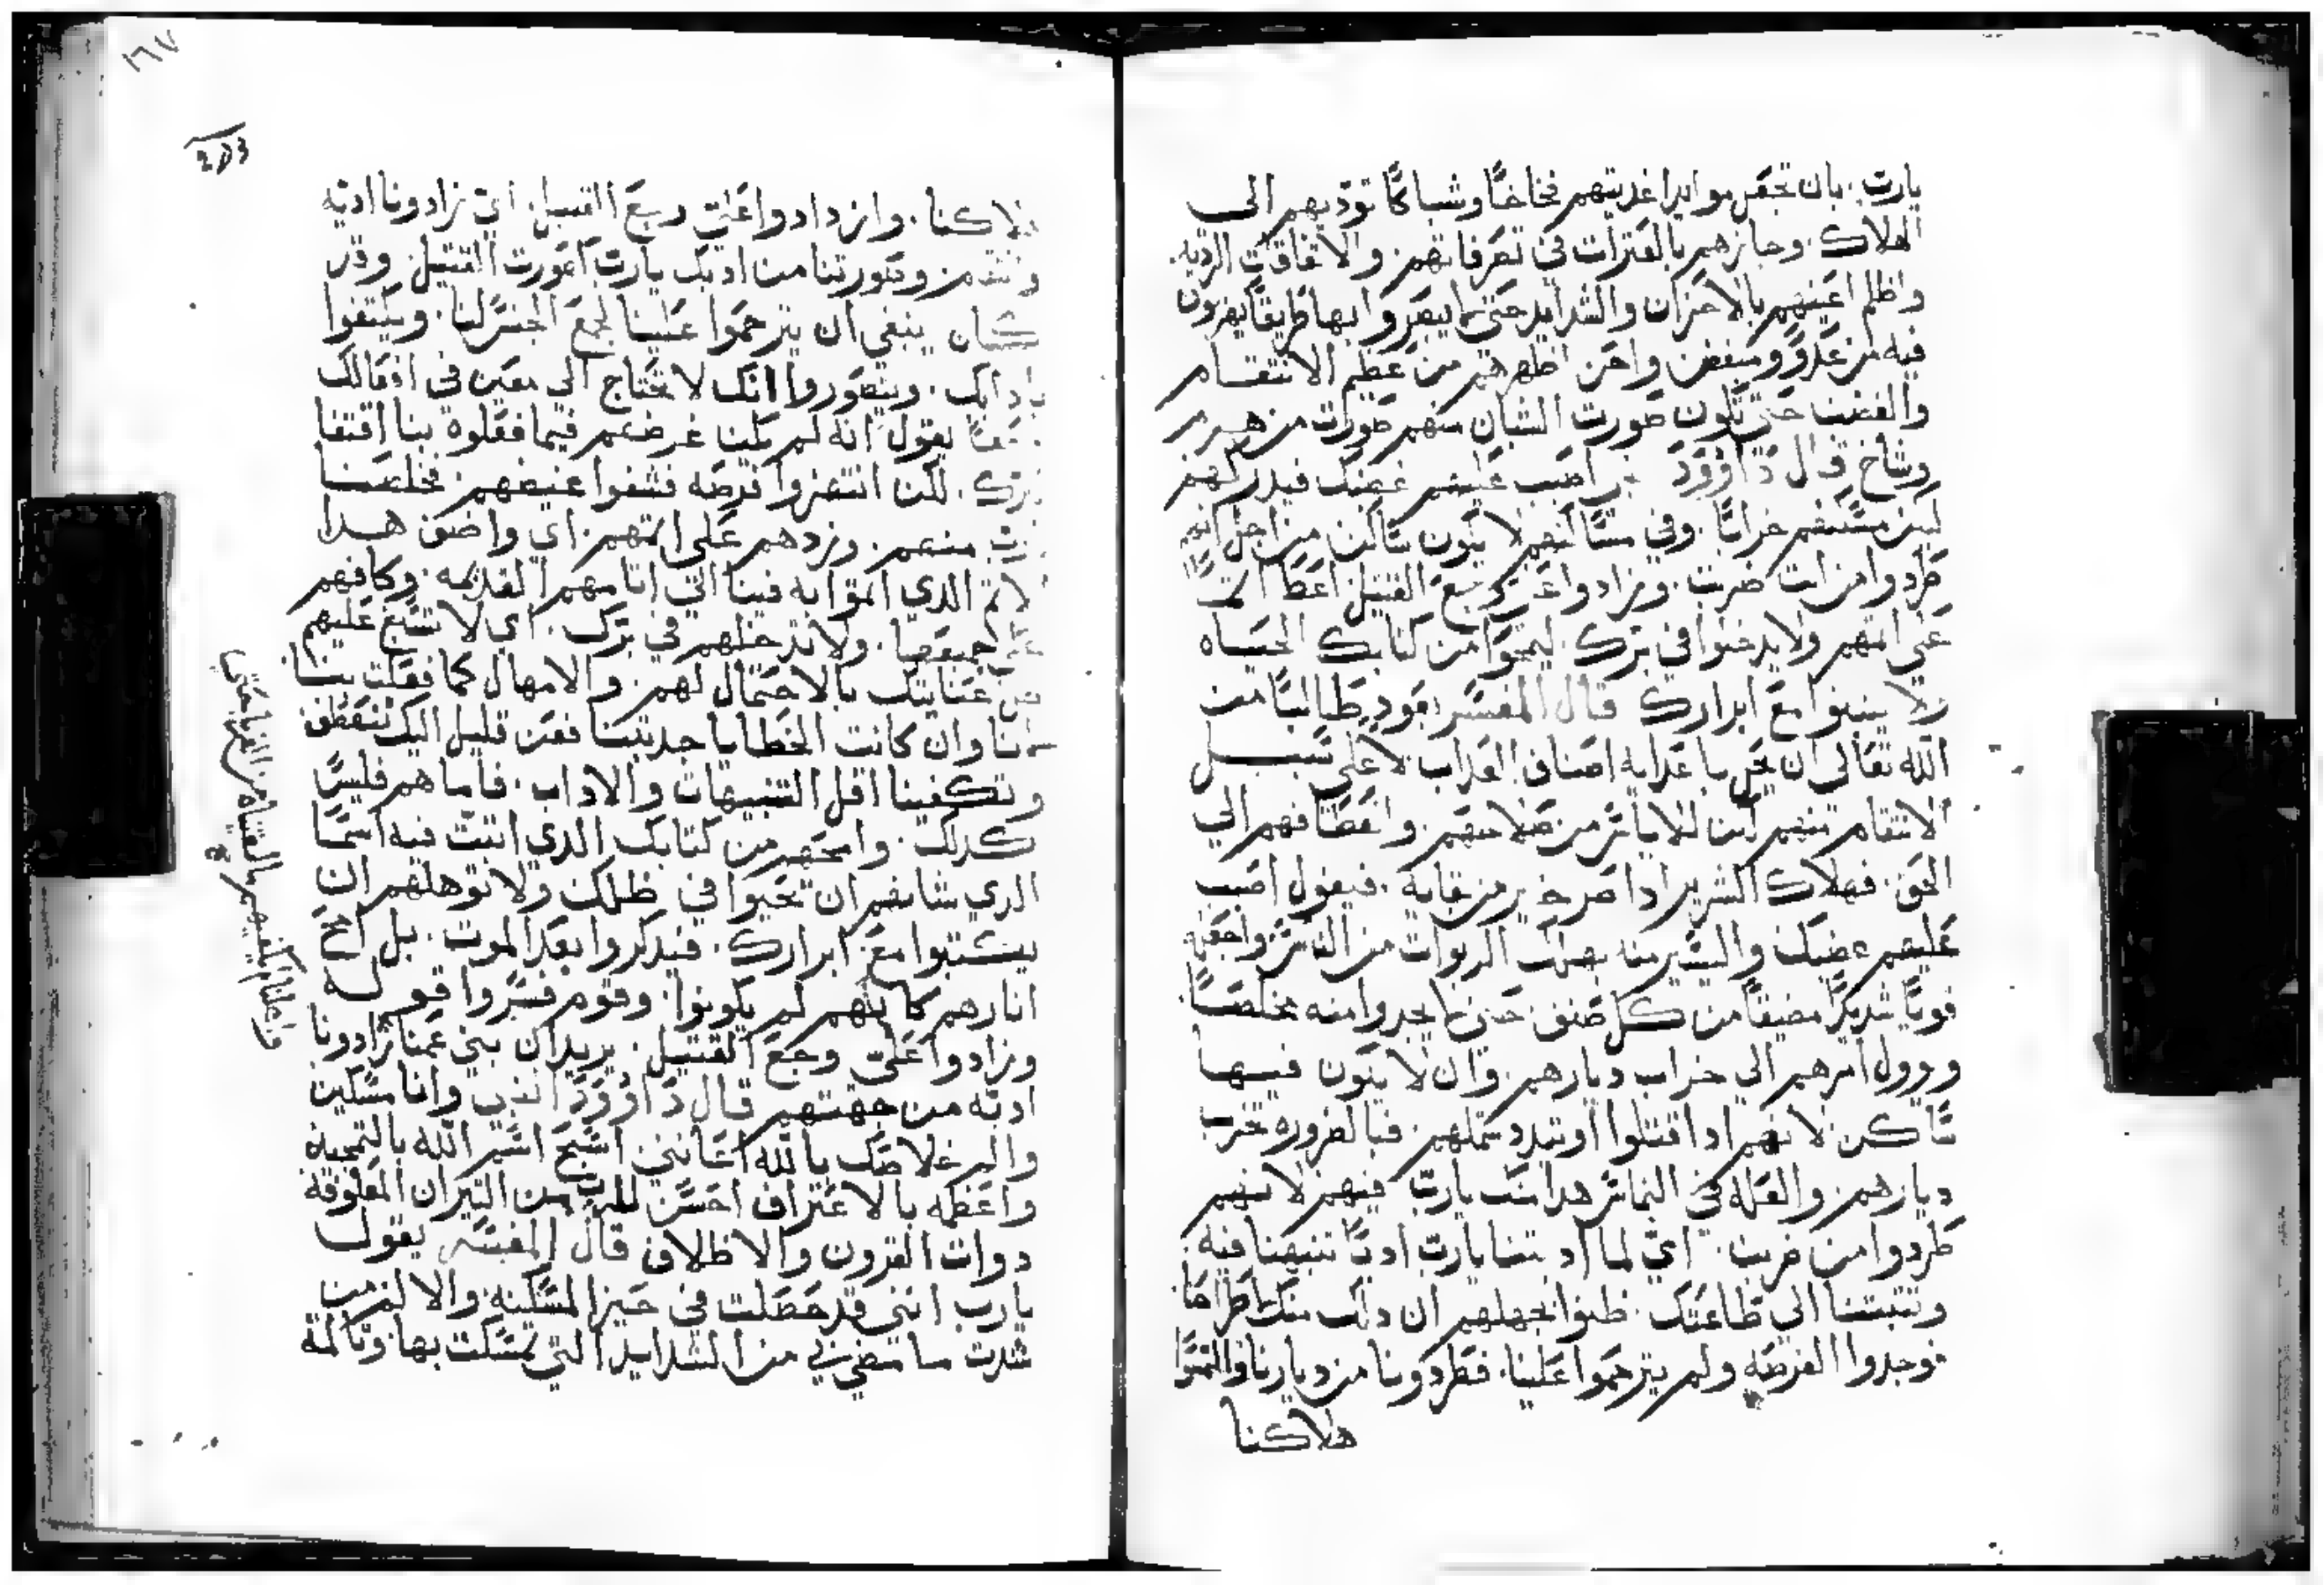 يارب بان تجعل موايد اغديتهم فخاخًا وشباكًا توديهم الى
الهلاك. وجازهم بالعترات في تصرفاتهم. والاتفاقات الرديه.
واظلم اعينهم بالاحزان والشدايد حتى لا يبصروا بها طريقًا يهربون
فيه من عدو ومبغض واحن اظهرهم من عظم الانتقام
والغضب حتى تكون صورت الشبان منهم صورت من هرم
وشاخ قال داوود اصبب عليهم غضبك فيدركهم
ليكن مسكنهم خرابًا. وفي مساكنهم لا يكون ساكن من اجل انهم
طردوا من انت ضربت. وزادوا على وجع القتيل اعط اتمًا
على اتمهم ولا يدخلوا في برك. ليمحوا من كتابك الحياه
ولا يكتبوا مع ابرارك قال المفسر يعود طالبًا من
الله تعالى ان يحل با عدايه اصناف العداب لا على سبيل
الانتقام منهم لكن للاياس من صلاحهم. وانعطافهم الي
الحق. فهلاك الشرير ادا صر خير من بقايه. فيقول اصبب
عليهم غضبك والبشريه
قويًا شديدًا مضيقًا من كل صنف حتى لا يجدوا منه مخلصًا
وول امرهم الي خراب ديارهم. وان لا يكون فيها
ساكن لانهم ادا قتلوا او تبدد شملهم. فبالضروره تخرب
ديارهم. والعله في التماس هدا منك يارب فيهم لانهم
طردوا من ضربت. اي لما ادبتنا يارب ادبًا تنبهنا فيه.
وتتبتنا الى طاعتك. ظنوا بجهلهم ان دلك منك اطراحًا
فوجدوا الفرصه ولم يترحموا علينا. فطردونا من ديارنا والتمسوا
هلاكنا
١٦٧
هلاكنا. وازدادوا على وجع القتيل. اي زادونا اديه
وتقدمن وصورتنا من ادبك يارب صورت القتيل. وقد
كان ينبغي ان يترحموا علينا لجمع الجنس لنا. ويكتفوا
بادابك. ويتصوروا انك لا تحتاج الى معين في افعالك
يقول انه لم يكن غرضهم فيما فعلوه بنا اقتفا
برك. لكن انتهزوا فرصه فشفوا غيضهم. فخلصنا
يارب منهم. وزدهم على اتمهم. اي واضف هدا
الاتم الدي اتموا به فينا الي اتامهم القديمه. وكافهم
على جميعها. ولا تدخلهم في برك. اي لا تسبغ عليهم
من عنايتك بالاحتمال لهم. والامهال كما فعلت بنا
وان كانت الخطايا جديبتنا فعن قليل اليك ننعطف
وتكفينا اقل التنبيهات والاداب. فاما هم فليس
كدلك. وامحهم من كتابك الدي اتبت فيه اسما
الدي شانهم ان يحيوا في ظلك ولا توهلهم ان
يكتبوا مع ابرارك. فيدكروا بعد الموت. بل امح
اتارهم كانهم لم يكونوا. وقوم فسروا قوله
وزادوا على وجع القتيل. يريد ان بني عمنا زادونا
اديه من جهتهم قال داوود النبي وانا مسكين
والم خلاصك يا الله اعانني اسبح اسم الله بالتمجيد
واعظمه بالاعتراف احسن للرب من التيران المعلوفه
دوات القرون والاظلاف قال المفسر يقول
يارب انني قد حصلت في حيز المسكنه. والالم من
شدت ما مضي بي من الشدايد التي تمسكت بها وتالمة
واجعلنا ان نكفيهم